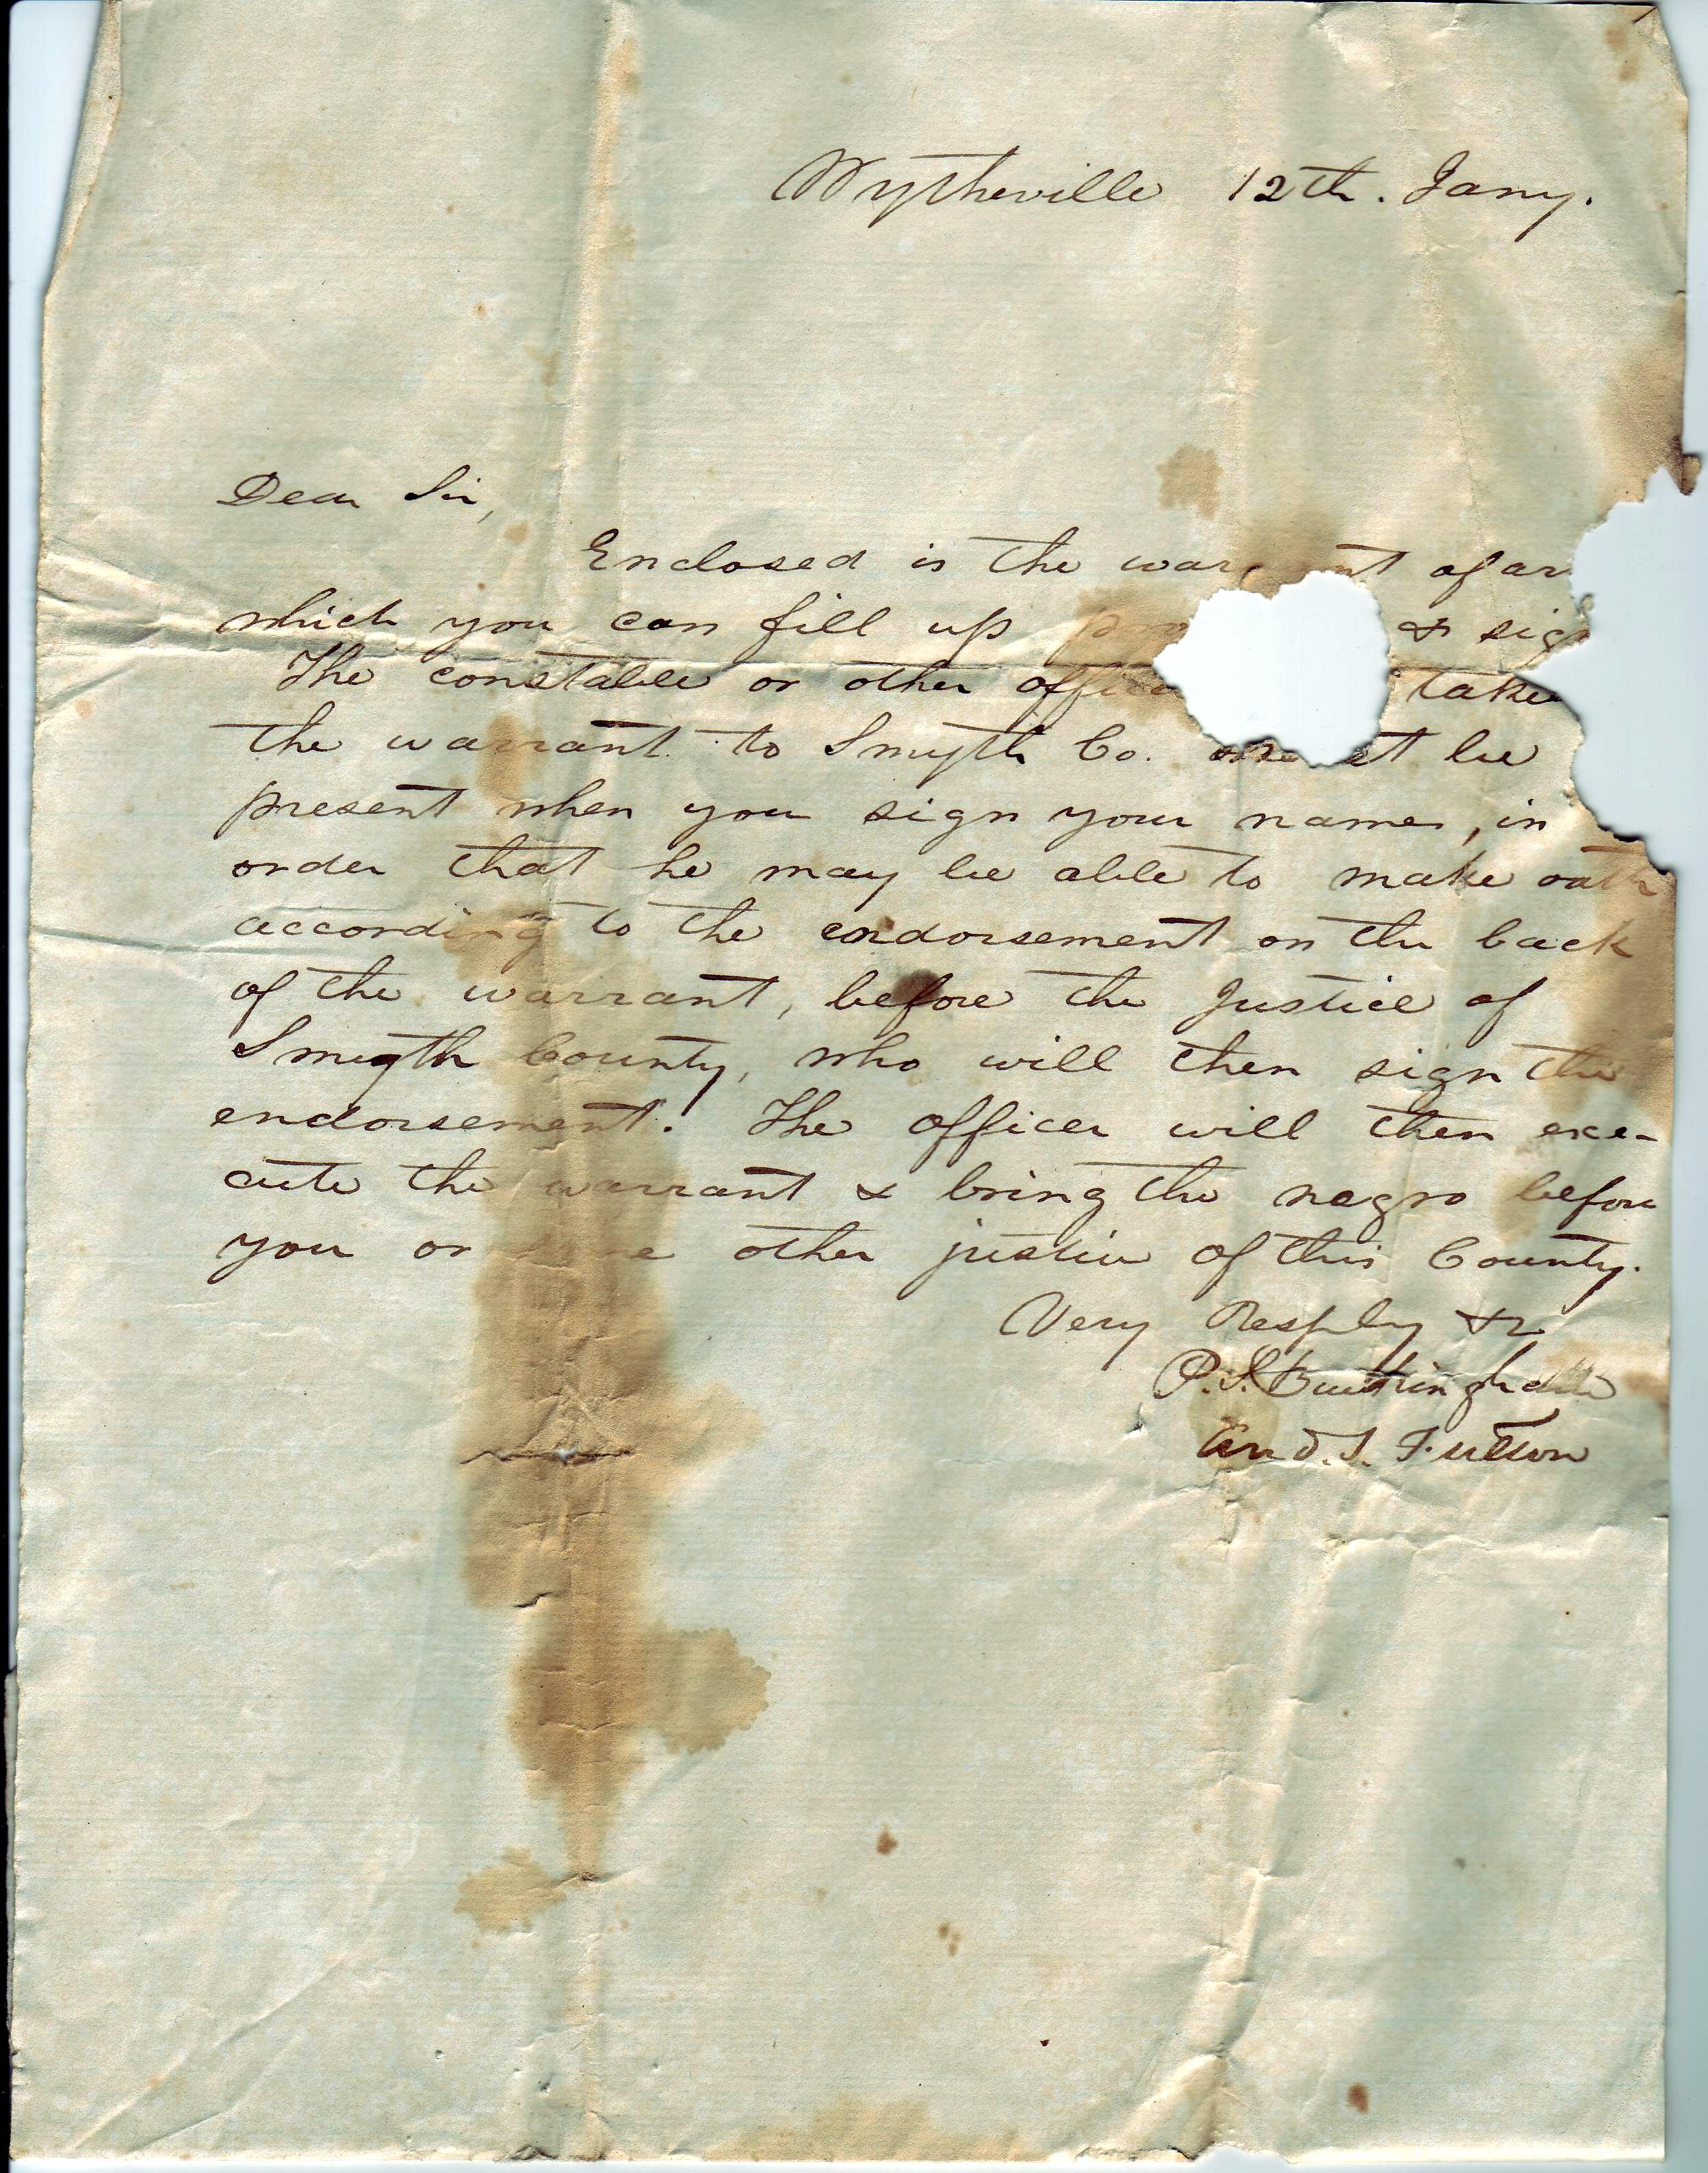 Wytheville 12th. Jany.
Dear Sir,
Enclosed is the warrant of
which you can fill up & sign
The constable or other takes
the warrant to Smyth Co. must be
present when you sign your names, in
order that he may be able to make oath
according to the endorsement on the back
of the warrant, before the Justice of
Smyth County, who will then sign the
endorsement. The officer will then exe-
cute the warrant & bring the negro before
you or some other justice of this County.
Very Resply &c
P. S. Buckingham
And. S. Fulton